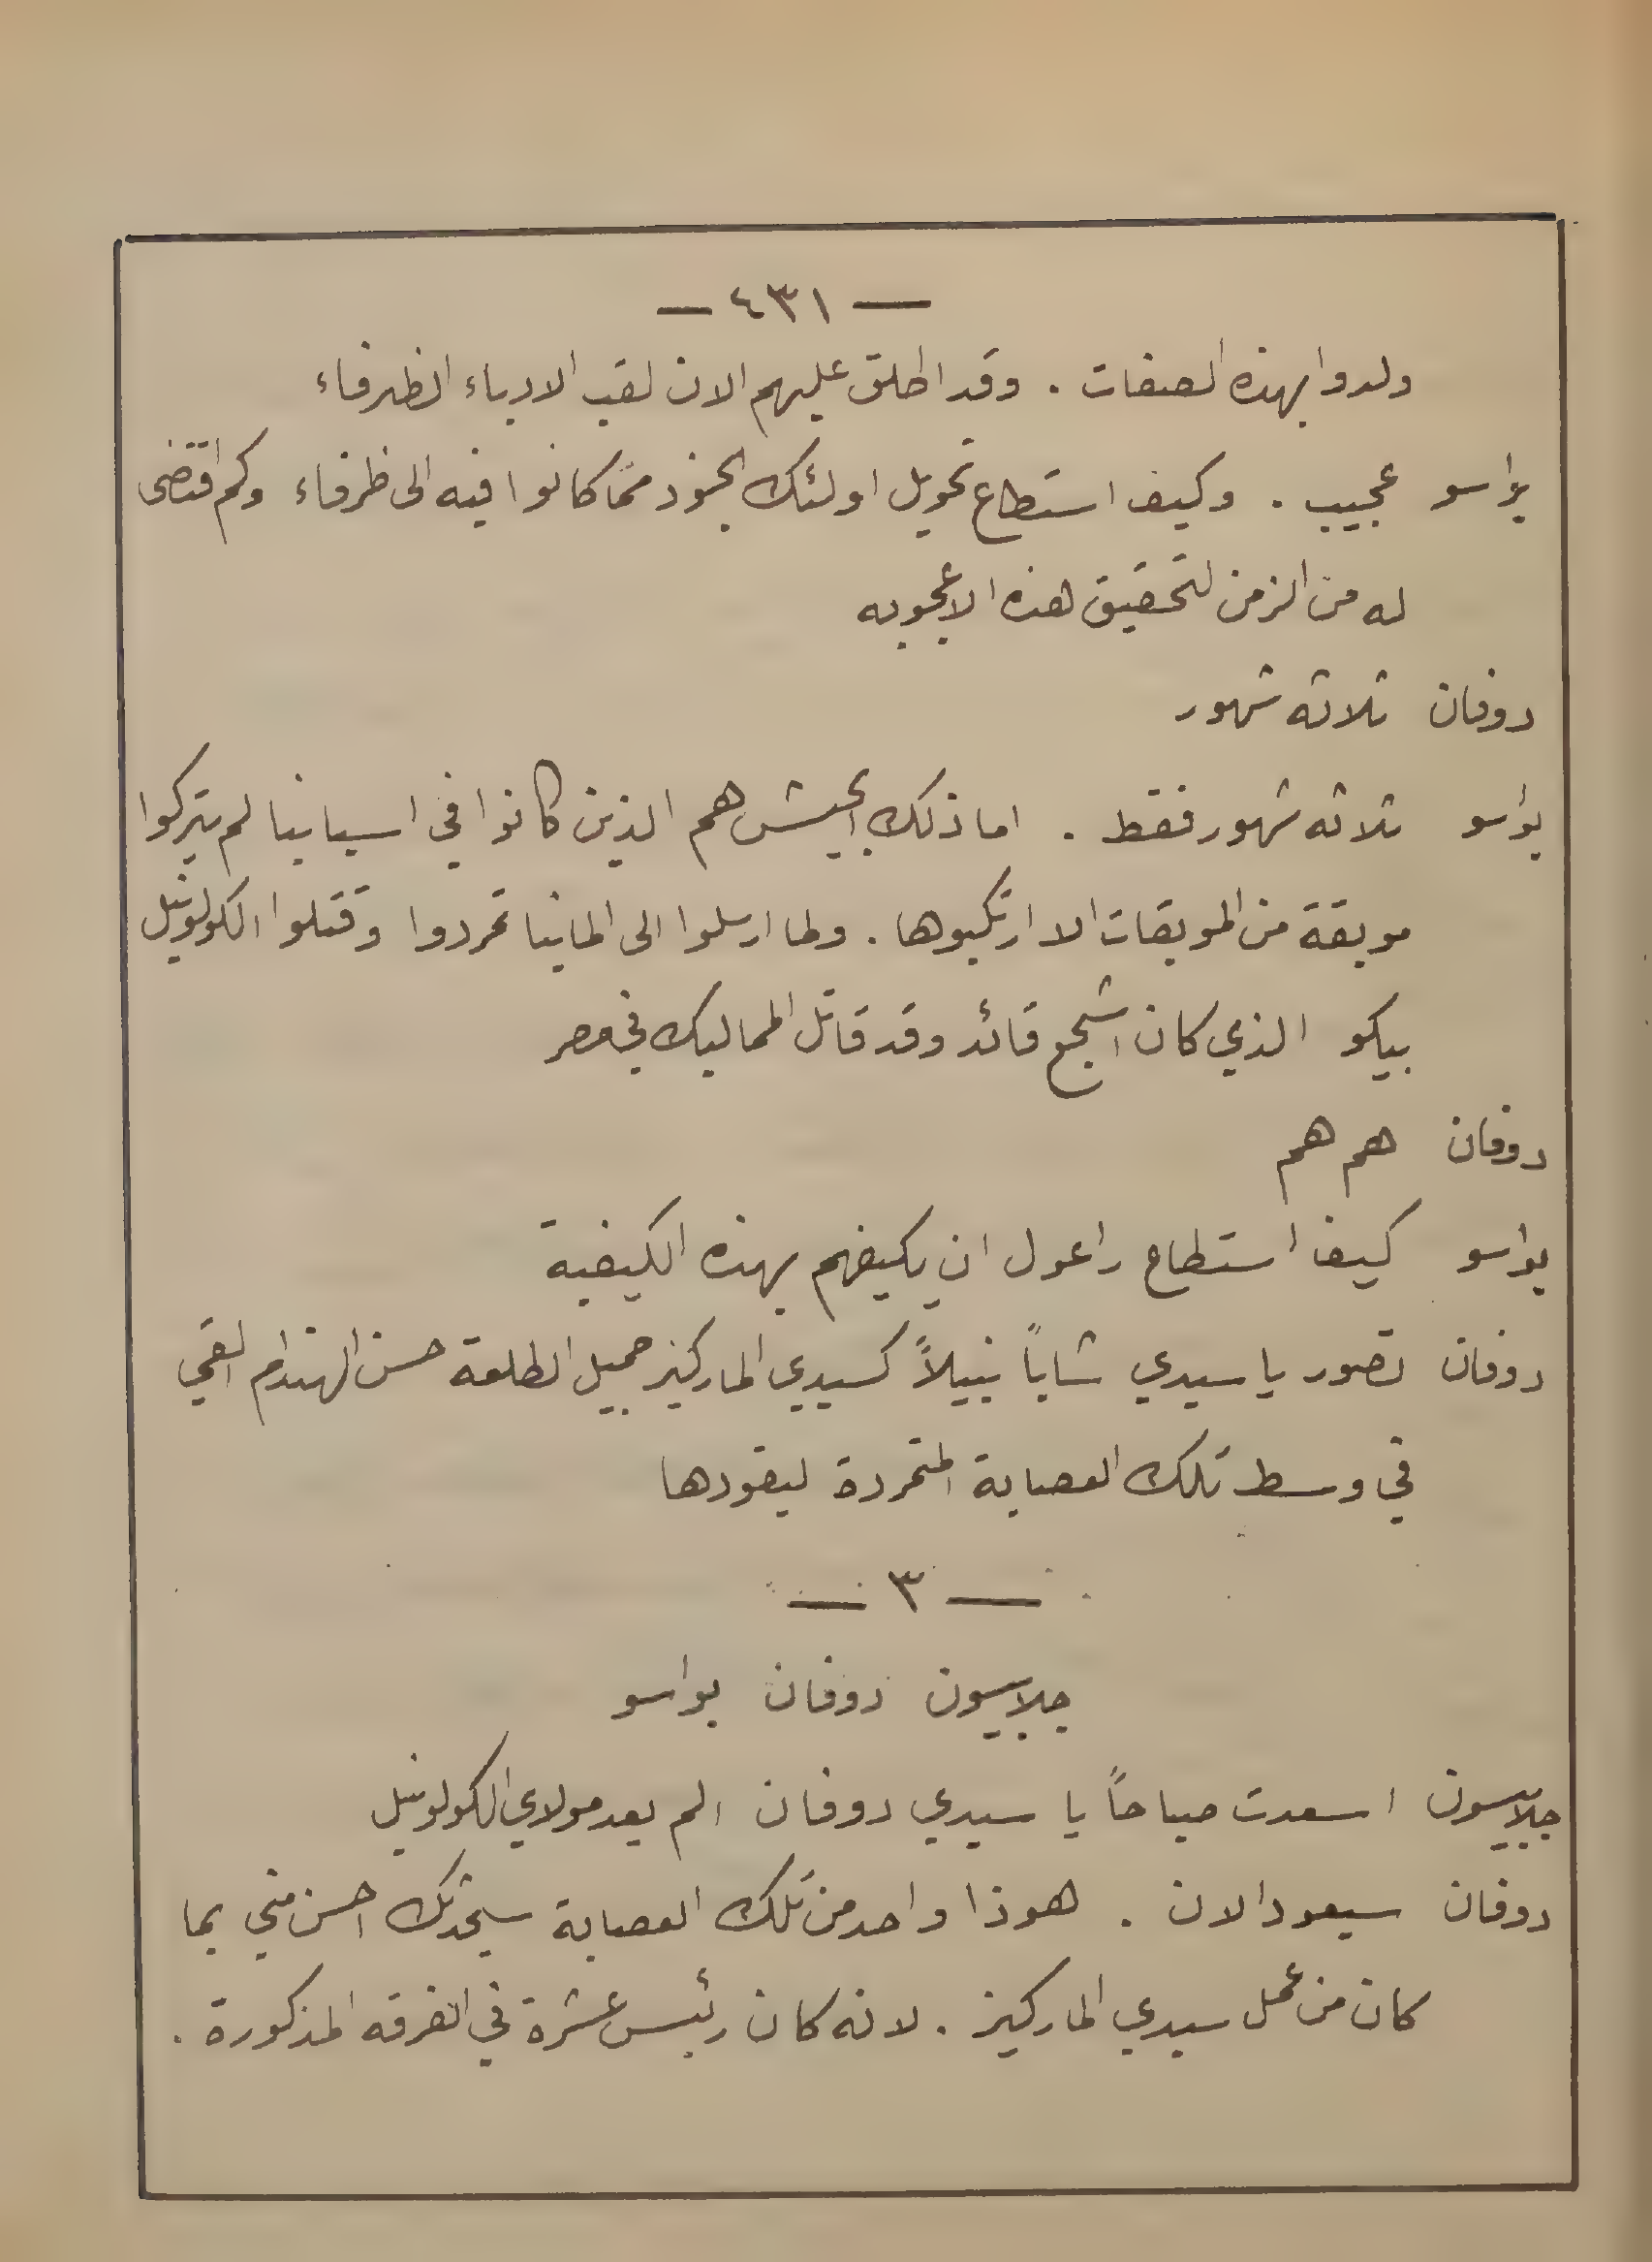 — ٤٣١ —
ولدوا بهذه الصفات . وقد اطلق عليهم الان لقب الادباء الظرفاء
بواسو عجيب . وكيف استطاع تحويل اولئك الجنود مما كانوا فيه الى ظرفاء وكم اقتضى
له من الزمن لتحقيق هذه الاعجوبه
دوفان ثلاثه شهور
بواسو ثلاثه شهور فقط . اما ذلك الجيش هم الذين كانوا في اسبانيا لم يتركوا
موبقة من الموبقات الا ارتكبوها . ولما ارسلوا الى المانيا تمردوا وقتلوا الكولونيل
بيكو الذي كان اشجع قائد وقد قاتل المماليك في مصر
دوفان هم هم
بواسو كيف استطاع راعول ان يكيفهم بهذه الكيفية
دوفان تصور يا سيدي شاباً نبيلاً كسيدي الماركيز جميل الطلعة حسن الهندام القي
في وسط تلك العصابة المتمردة ليقودها
— ٣ —
جلابيسون دوفان بواسو
جلابيسون اسعدت صباحاً يا سيدي دوفان الم يعد مولاي الكولونيل
دوفان سيعود الان . هوذا واحد من تلك العصابة سيحدثك احسن مني بما
كان من عمل سيدي الماركيز . لانه كان رئيس عشرة في الفرقه المذكورة .